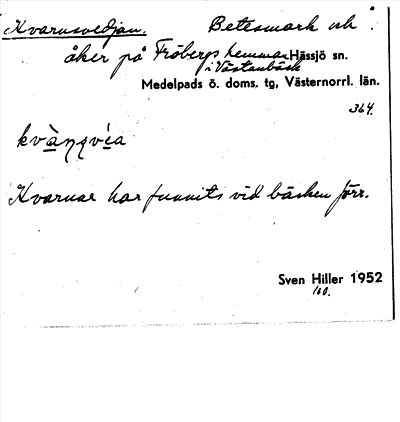 Kvarnsvedjan. Betesmark och
åker på Fröbergs hemman Hässjö sn.
i Västanbäck
Medelpads ö. doms. tg, Västernorrl. län.
364.
Kvarnar har funnits vid bäcken förr.
Sven Hiller 1952
160.